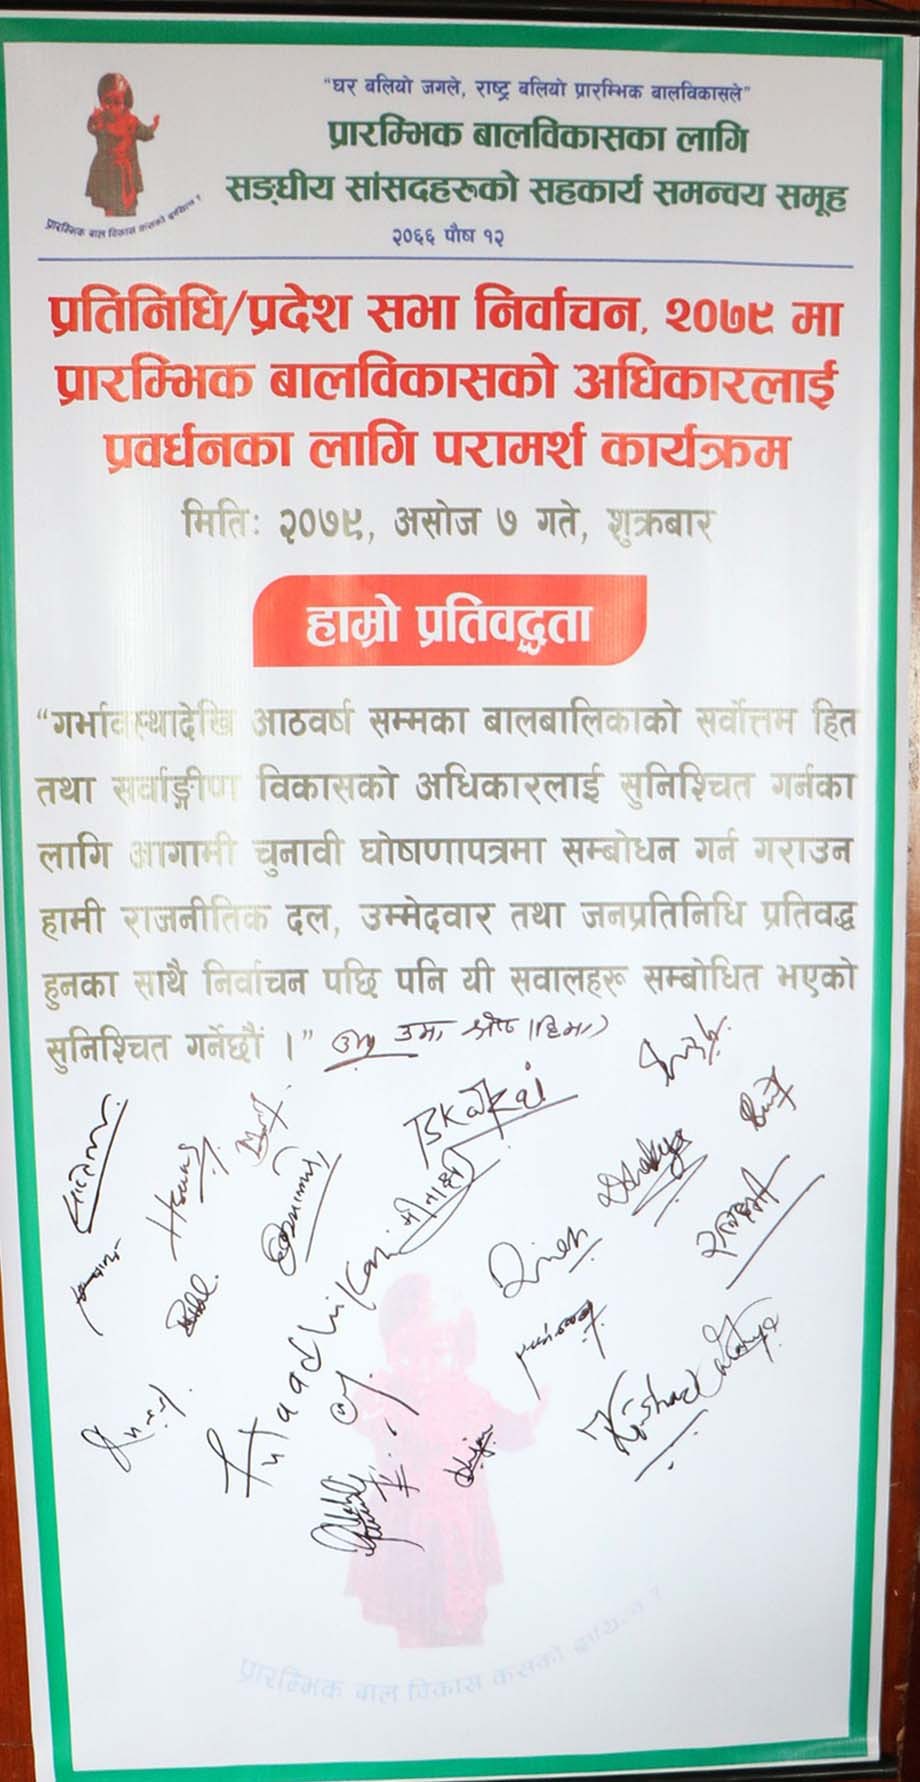 "घर बलियो जगले, राष्ट्र बलियो प्रारम्भिक बालविकासले"
प्रारम्भिक बालविकासका लागि
सङ्घीय सांसदहरुको सहकार्य समन्वय समूह
२०६६ पौष १२
प्रारम्भिक बाल विकास कसको
प्रतिनिधि/प्रदेश सभा निर्वाचन, २०७९ मा
प्रारम्भिक बालविकासको अधिकारलाई
प्रवर्धनका लागि परामर्श कार्यक्रम
मितिः २०७९, असोज ७ गते, शुक्रबार
हाम्रो प्रतिवद्धता
"गर्भावस्थादेखि आठवर्ष सम्मका बालबालिकाको सर्वोत्तम हित
तथा सर्वाङ्गीण विकासको अधिकारलाई सुनिश्चित गर्नका
लागि आगामी चुनावी घोषणापत्रमा सम्बोधन गर्न गराउन
हामी राजनीतिक दल, उम्मेदवार तथा जनप्रतिनिधि प्रतिवद्ध
हुनका साथै निर्वाचन पछि पनि यी सवालहरू सम्बोधित भएको
सुनिश्चित गर्नेछौं ।"
उमा
Dinesh
प्रारम्भिक बाल विकास कसको